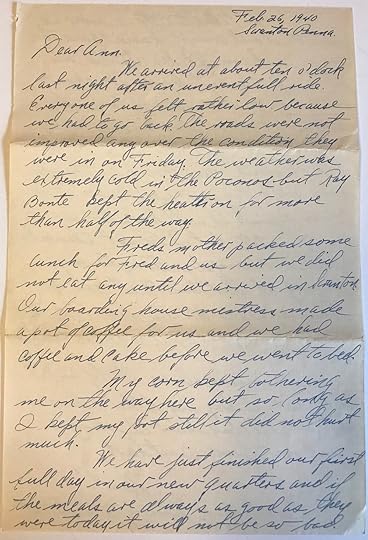 Feb. 26, 1940
Scranton Penna.
Dear Ann.
We arrived at about ten o'clock
last night after an uneventfull ride.
Everyone of us felt rather low because
we had to go back. The roads were not
improved any over the condition they
were in on Friday. The weather was
extremely cold in the Poconos but Ray
Bonte kept the heat on for more
than half of the way.
Freds mother packed some
lunch for Fred and us but we did
not eat any until we arrived in Scranton.
Our boarding house mistress made
a pot of coffee for us and we had
coffee and cake before we went to bed.
My corn kept bothering
me on the way here but so long as
I kept my foot still it did not hurt
much.
We have just finished our first
full day in our new quarters and if
the meals are always as good as they
were today it will not be so bad